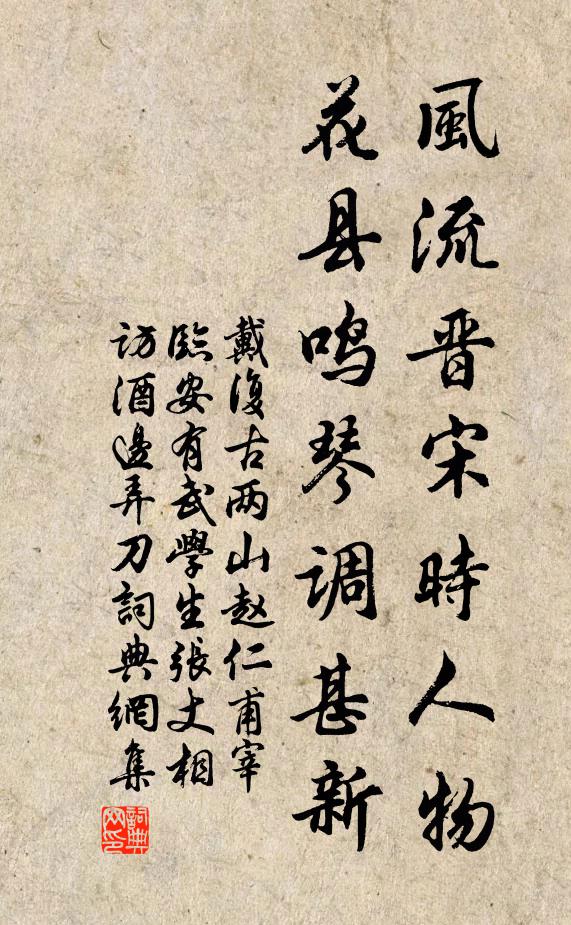 風流晋宋時人物
花县鸣琴调甚新
戴復古两山赵仁甫宰
臨安有武學生張丈相
访酒邊弄刀詞典網集
詞典
网印